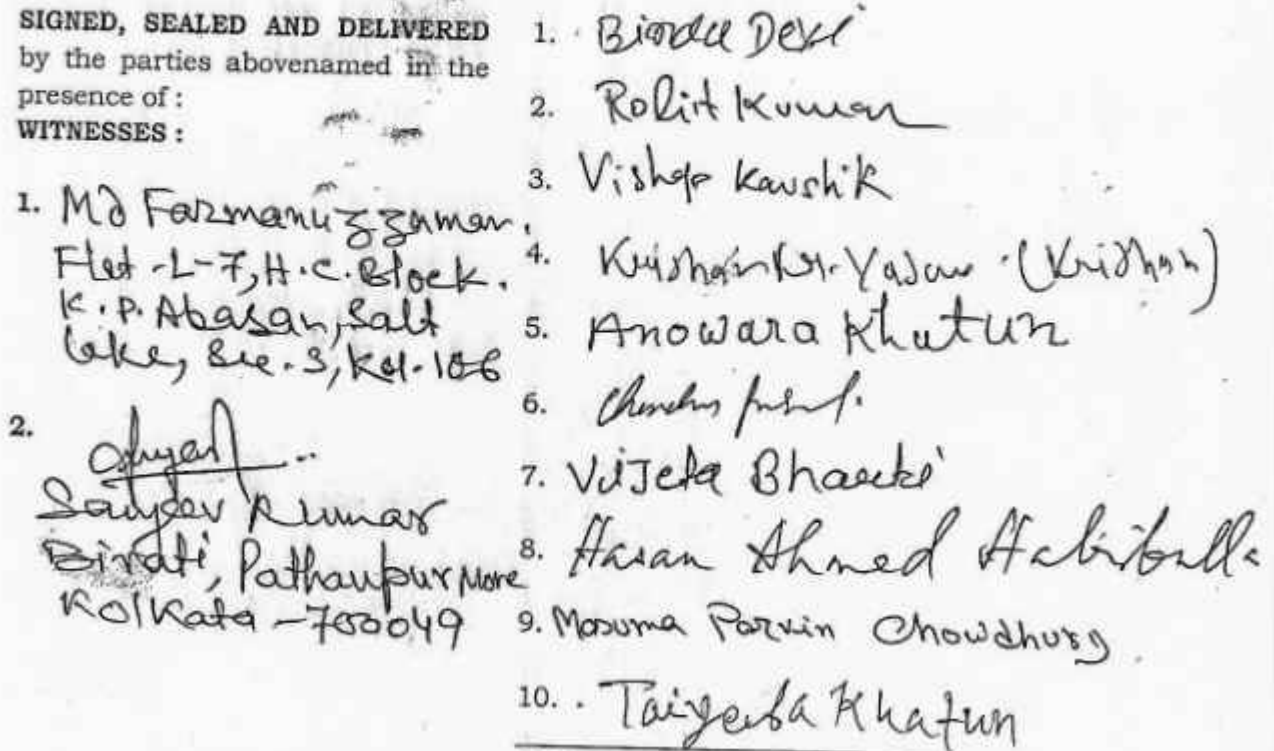 SIGNED, SEALED AND DELIVERED
by the parties abovenamed in the
presence of :
WITNESSES :
1. Md Farmanuzzaman.
Flat-L-7, H.C. Block.
K.P. Abasan, Salt
Lake, Sec.3, Kol-106
2.
Sanjeev Kumar
Birati, Pathanpur More
Kolkata-700049
1. Bindu Devi
2. Rohit Kumar
3. Kaushik
4. Krishan Kr. Yadav (Krishan)
5. Anowara Khatun
6.
7. Vijeta
8. Hasan Ahmed Habibulla
9. Masuma Parvin Chowdhury
10. Taiyeba Khatun